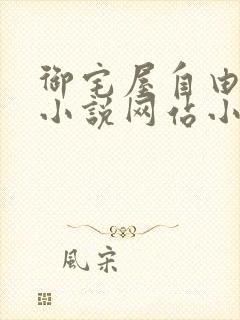 御宅屋自由
小说网站小
風宋